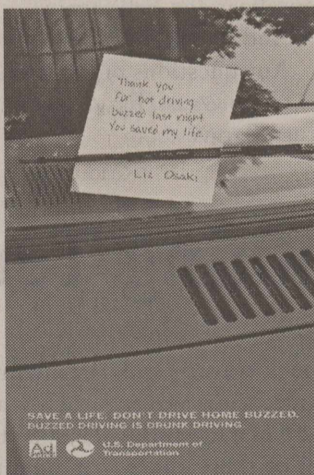 Thank you
for not driving
buzzed last night
You saved my life.
Liz Osaki
SAVE A LIFE. DON'T DRIVE HOME BUZZED.
BUZZED DRIVING IS DRUNK DRIVING.
Ad
U.S. Department of
Transportation